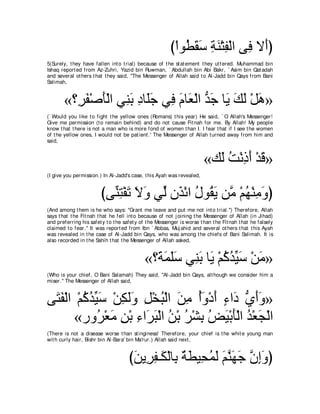 (أَلا فِى الْفِتْنَةِ سَقَطُواْ)
5(Surely, they have fallen into trial) because of the statement they uttered. Muhammad bin
Ishaq reported from Az-Zuhri, Yazid bin Ruwman, `Abdullah bin Abi Bakr, `Asim bin Qatadah
and several others that they said, "The Messenger of Allah said to Al-Jadd bin Qays from Bani
Salimah,
«هَلْ لَكَ يَا جَدُّ الْعَامَ فِي جَلَادِ بَنِي الْأَصْفَرِ؟»
(`Would you like to fight the yellow ones (Romans) this year) He said, `O Allah's Messenger!
Give me permission (to remain behind) and do not cause Fitnah for me. By Allah! My people
know that there is not a man who is more fond of women than I. I fear that if I see the women
of the yellow ones, I would not be patient.' The Messenger of Allah turned away from him and
said,
«قَدْ أَذِنْتُ لَكَ»
(I give you permission.) In Al-Jadd's case, this Ayah was revealed,
(وَمِنْهُمْ مَّن يَقُولُ ائْذَن لِّي وَلاَ تَفْتِنِّى)
(And among them is he who says: "Grant me leave and put me not into trial.") Therefore, Allah
says that the Fitnah that he fell into because of not joining the Messenger of Allah (in Jihad)
and preferring his safety to the safety of the Messenger is worse than the Fitnah that he falsely
claimed to fear." It was reported from Ibn `Abbas, Mujahid and several others that this Ayah
was revealed in the case of Al-Jadd bin Qays, who was among the chiefs of Bani Salimah. It is
also recorded in the Sahih that the Messenger of Allah asked,
«مَنْ سَيِّدُكُمْ يَا بَنِي سَلَمَةَ؟»
(Who is your chief, O Bani Salamah) They said, "Al-Jadd bin Qays, although we consider him a
miser." The Messenger of Allah said,
«وَأَيُّ دَاءٍ أَدْوَأُ مِنَ الْبُخْلِ وَلَكِنْ سَيِّدُكُمْ الْفَتَى
الْجَعْدُ الْأَبْيَضُ بِشْرُ بْنُ الْبَرَاءِ بْنِ مَعْرُورٍ»
(There is not a disease worse than stinginess! Therefore, your chief is the white young man
with curly hair, Bishr bin Al-Bara' bin Ma`rur.) Allah said next,
(وَإِنَّ جَهَنَّمَ لَمُحِيطَةٌ بِالْكَـفِرِينَ)